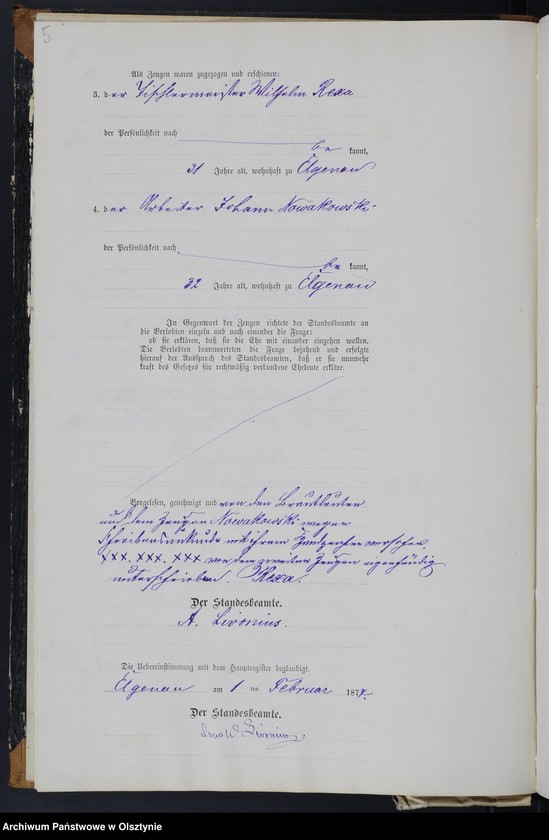 5
Als Zeugen waren zugezogen und erschienen:
3. der Tischlermeister Wilhelm Rexa
der Persönlichkeit nach
be kannt,
31 Jahre alt, wohnhaft zu Elgenau
4. der Arbeiter Johann Nowakowski
der Persönlichkeit nach
be kannt,
32 Jahre alt, wohnhaft zu Elgenau
In Gegenwart der Zeugen richtete der Standesbeamte an
die Verlobten einzeln und nach einander die Frage:
ob sie erklären, daß sie die Ehe mit einander eingehen wollen.
Die Verlobten beantworteten die Frage bejahend und erfolgte
hierauf der Ausspruch des Standesbeamten, daß er sie nunmehr
kraft des Gesetzes für rechtmäßig verbundene Eheleute erkläre.
Vorgelesen, genehmigt und von den Brautleuten
und dem Zeugen Nowakowski wegen
Schreibensunkunde mit ihrem Handzeichen versehen,
XXX. XXX. XXX von dem zweiten Zeugen eigenhändig
unterschrieben. Rexa.
Der Standesbeamte.
A. Livonius.
Die Uebereinstimmung mit dem Hauptregister beglaubigt.
Elgenau am 1 ten Februar 187
Der Standesbeamte.
Livonius
Archiwum Państwowe w Olsztynie